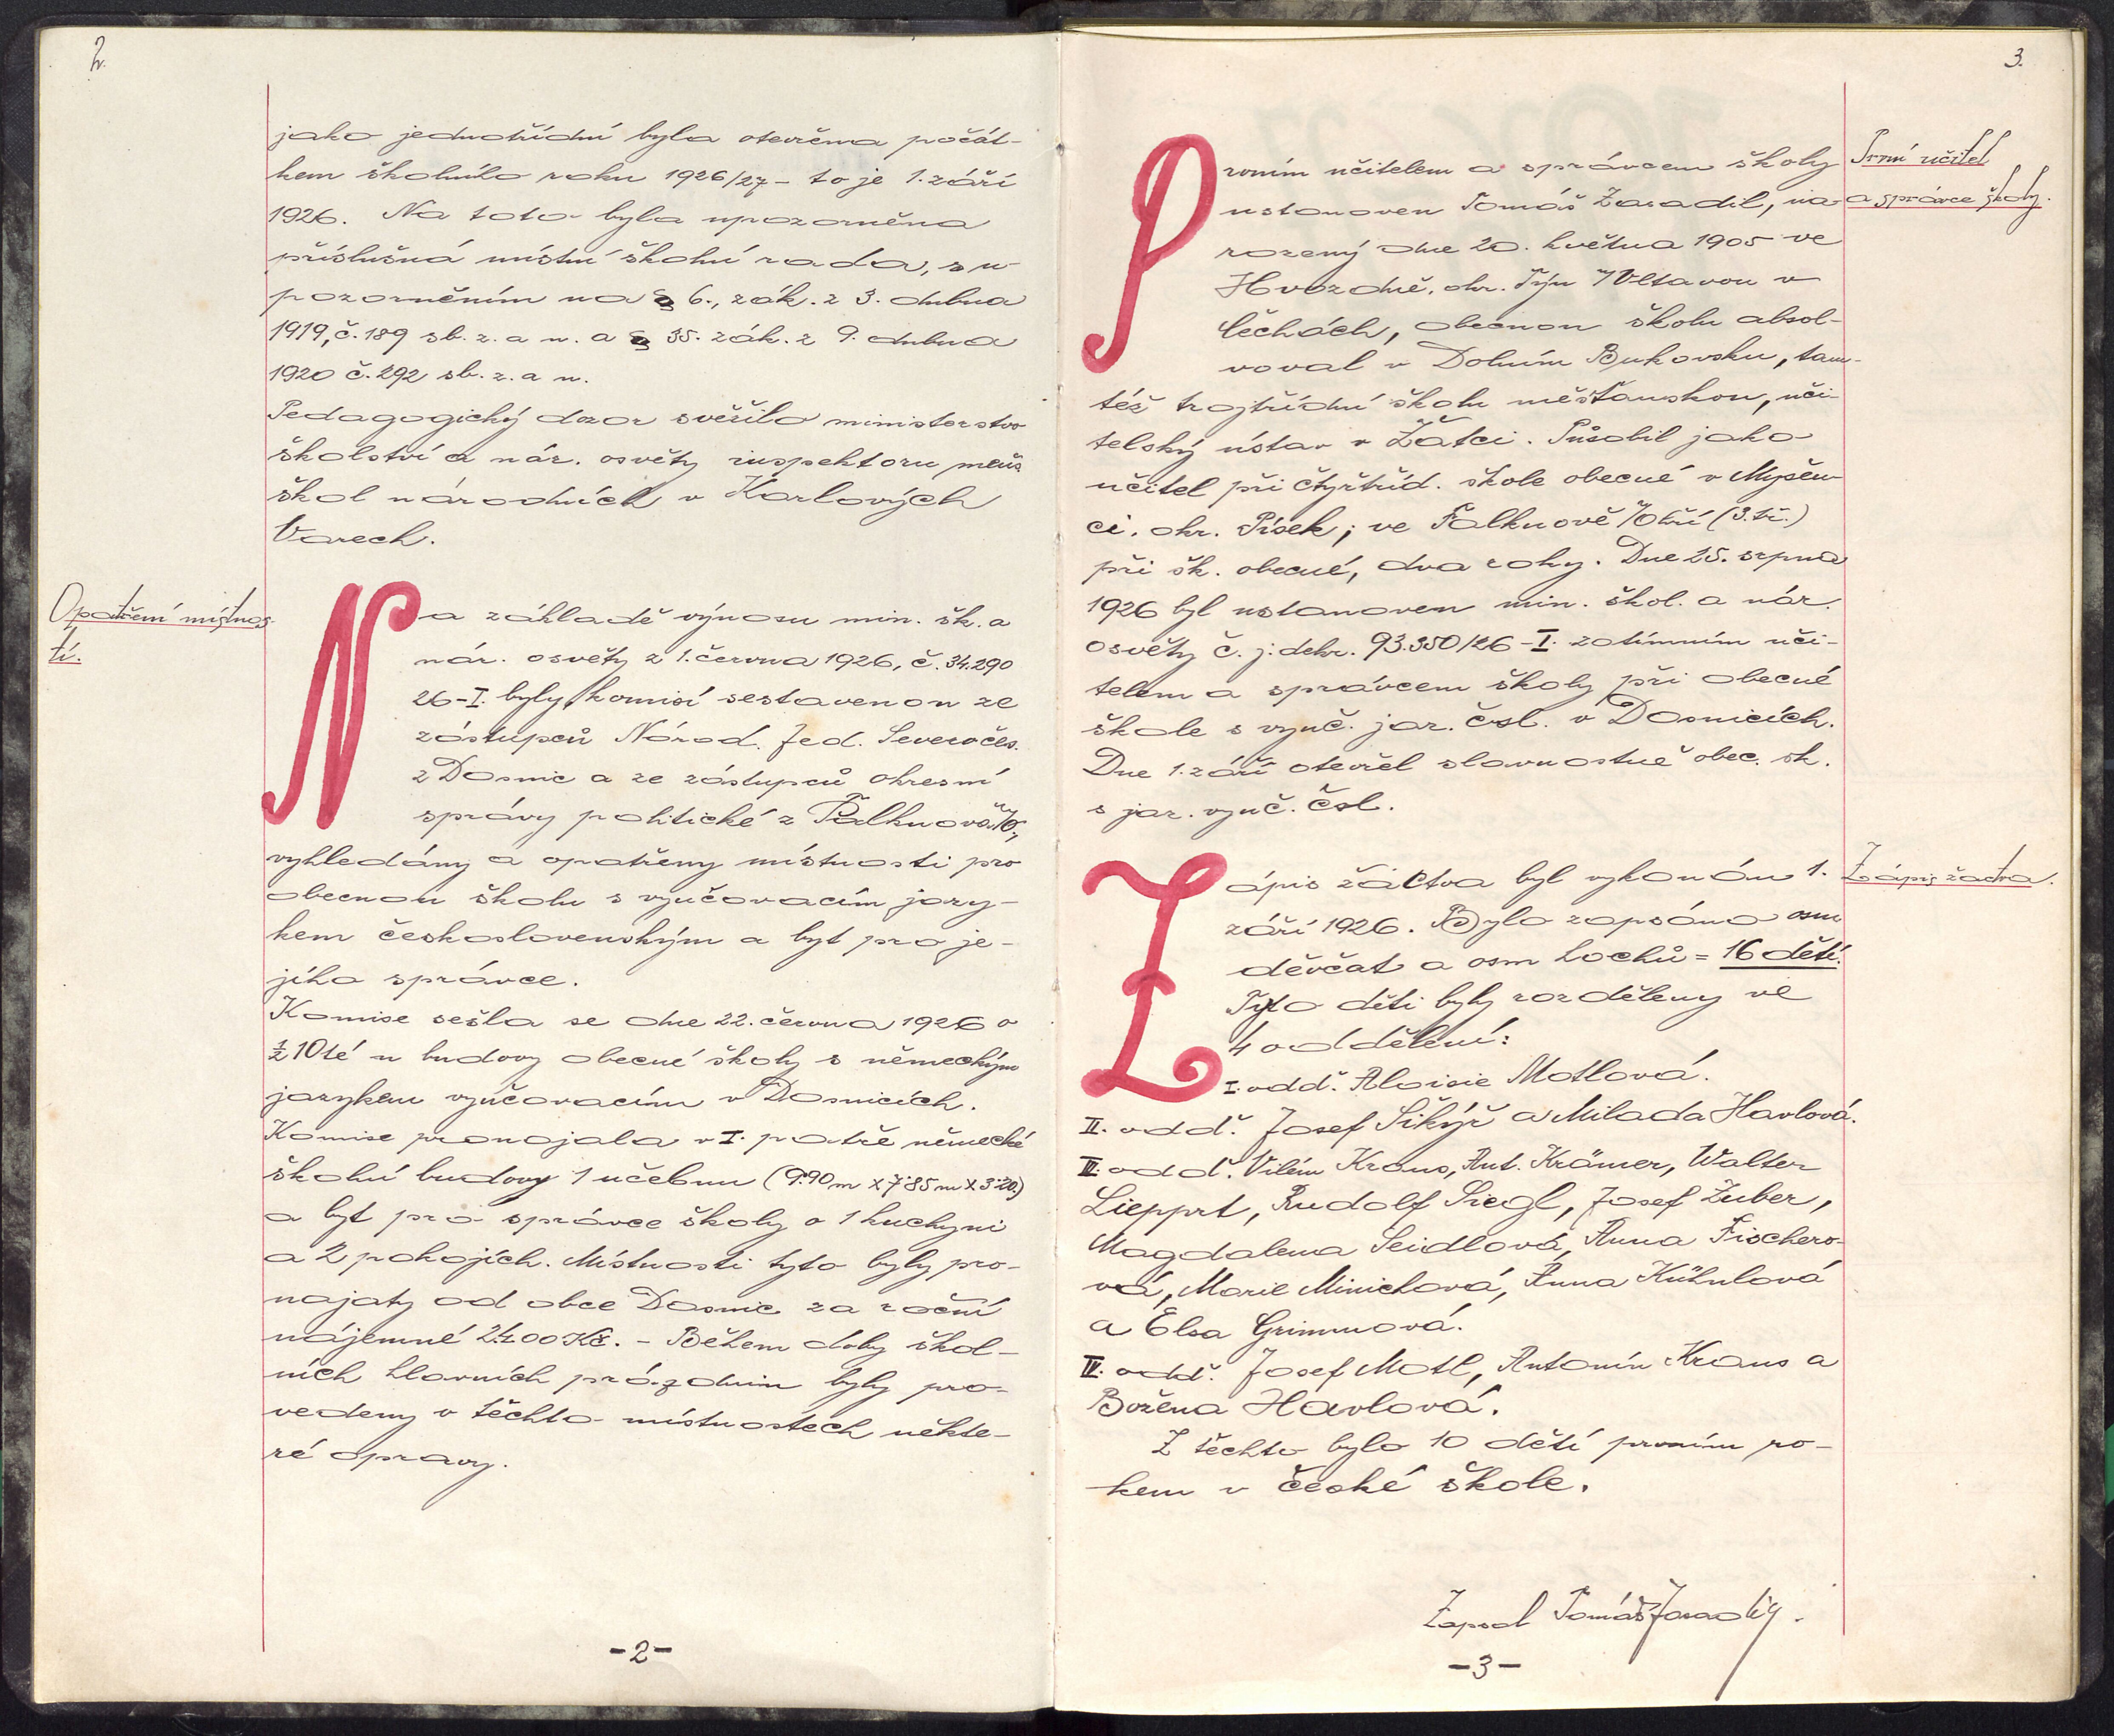 2.
jako jednotřídní byla otevřena počát-
kem školního roku 1926/27 - to je 1. září
1926. Na toto byla upozorněna
příslušná místní školní rada, s u-
pozorněním na § 6., zák. z 3. dubna
1919, č. 189 sb. z. a n. a § 35. zák. z 9. dubna
1920 č. 292 sb. z. a n.
Pedagogický dozor svěřilo ministerstvo
školství a nár. osvěty inspektoru menš.
škol národních v Karlových
Varech.
Opatření místnos-
tí.
Na základě výnosu min. šk. a
nár. osvěty z 1. června 1926, č. 34.290
26-I. byly komisí sestavenou ze
zástupců Národ. Jed. Severočes.
z Dasnic a ze zástupců okresní
správy politické z Falknova n/O.,
vyhledány a opatřeny místnosti pro
obecnou školu s vyučovacím jazy-
kem československým a byt pro je-
jího správce.
Komise sešla se dne 22. června 1926 o
½ 10té u budovy obecné školy s německým
jazykem vyučovacím v Dasnicích.
Komise pronajala v I. patře německé
školní budovy 1 učebnu (9.90 m x 7.85 m x 3.20)
a byt pro správce školy o 1 kuchyni
a 2 pokojích. Místnosti tyto byly pro-
najaty od obce Dasnic za roční
nájemné 2400 Kč. - Během doby škol-
ních hlavních prázdnin byly pro-
vedeny v těchto místnostech někte-
ré opravy.
-2-
3.
Prvním učitelem a správcem školy
ustanoven Tomáš Zasadil, na-
rozený dne 20. května 1905 ve
Hvozdně, okr. Týn n/Vltavou v
Čechách, obecnou školu absol-
voval v Dolním Bukovsku, tam-
též trojtřídní školu měšťanskou, uči-
telský ústav v Žatci. Působil jako
učitel při čtyřtříd. škole obecné v Myšen-
ci, okr. Písek; ve Falknově n/Ohří (3. tř.)
při šk. obecné, dva roky. Dne 25. srpna
1926 byl ustanoven min. škol. a nár.
osvěty č. j. dekr. 93.350/26-I. zatímním uči-
telem a správcem školy při obecné
škole s vyuč. jaz. čsl. v Dasnicích.
Dne 1. září otevřel slavnostně obec. šk.
s jaz. vyuč. čsl.
První učitel
a správce školy.
Zápis žactva byl vykonán 1.
září 1926. Bylo zapsáno osm
děvčat a osm hochů = 16 dětí.
Tyto děti byly rozděleny ve
4 oddělení:
I. odd. Aloisie Motlová.
II. odd. Josef Šikýř a Milada Havlová.
III. odd. Vilém Kraus, Ant. Krämer, Walter
Liepprt, Rudolf Siegl, Josef Zuber,
Magdalena Seidlová, Anna Fischero-
vá, Marie Minichová, Anna Kühnlová
a Elsa Grimmová.
IV. odd. Josef Motl, Antonín Kraus a
Božena Havlová.
Z těchto bylo 10 dětí prvním ro-
kem v české škole.
Zápis žactva.
Zapsal Tomáš Zasadil.
-3-